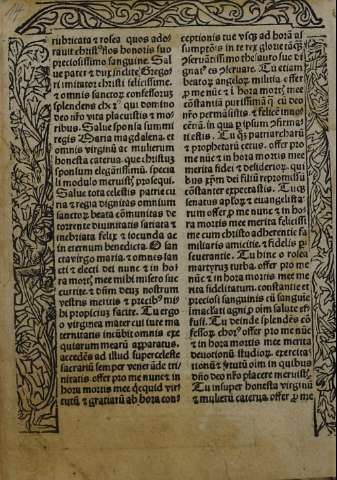 rubricata et rosea quos ado⸗
rauit christꝰ nos honoris suo
preciosissimo sanguine. Sal
ue pater et dux inclite Grego⸗
ri imitator christi felicissime.
et omnis sanctorꝝ confessorꝝ
splendens chorꝰ qui domino
deo nr̄o vita placuistis et mo⸗
ribus. Salue sponsa summi
regis Maria magdalena. et
omnis virginū ac mulierum
honesta caterua. que christuꝫ
sponsum elegātissimū. speciā
li modulo meruistꝭ prosequi.
Salue tota celestis patrie cu
ria et regia dignitas omnium
sanctorꝝ. beata cōmunitas de
torrente diuinitatis satiata et
inebriata felix et iocunda ac
in eternum benedicta. O san
cta virgo maria. et omnes san
cti et electi dei nunc et in ho⸗
ra mortꝭ mee mihi misero suc
currite. et deum nostrum
vestris meritis et precibꝰ mi⸗
hi propicium facite. Tu ergo
o virginea mater cui tute ma
ternitatis incūbit omnis exe
quiarum mearū apparatus.
accedēs ad illud superceleste
sacrariū semper venerāde tri⸗
nitatis. offer pro me nunc et in
hora mortis mee quicquid vir
tutū et gratiarū ab hora con⸗
ceptionis tue vsqꝫ ad horā as
sumptōis in rex glorie
Tu etiam
beatorꝝ angelorꝝ militia offer
ꝓ me nūc et ī hora mortꝭ mee
cōstantiā purissimā qua cū deo
nr̄o permāsistis
cēnā. in qua ꝑ ipsum
ti estis. Tu qꝫ patriarcharū
et prophetarū cetus. offer pro
me nūc et in hora mortis mee
merita fidei et desiderioꝝ. qui
bus xp̄m dei filiū repromissū
cōstanter expectastis. Tu qꝫ
senatus aplorꝝ et euangelista⸗
rum offer ꝓ me nunc et in ho⸗
ra mortis mee merita felicissi
me cum christo adherentie fa
miliaris amicitie. et fidelis ꝑ
seuerantie. Tu hinc o rosea
martyrum turba. offer pro me
nūc et in hora mortis mee me
rita fidelitatum. constantie et
preciosi sanguinis cū sanguīe
imaculati agni ꝓ oīm salute ef
fusi. Tu deinde splendēs cō
fessorꝝ chorꝰ offer pro me nūc
et in hora mortis mee merita
devotionū studioꝝ. exercita⸗
tionū et virtutū oīm. in quibus
dn̄o deo nr̄o placere meruistꝭ
Tu insuper honesta virginū
et mulierū caterua offer ꝓ me